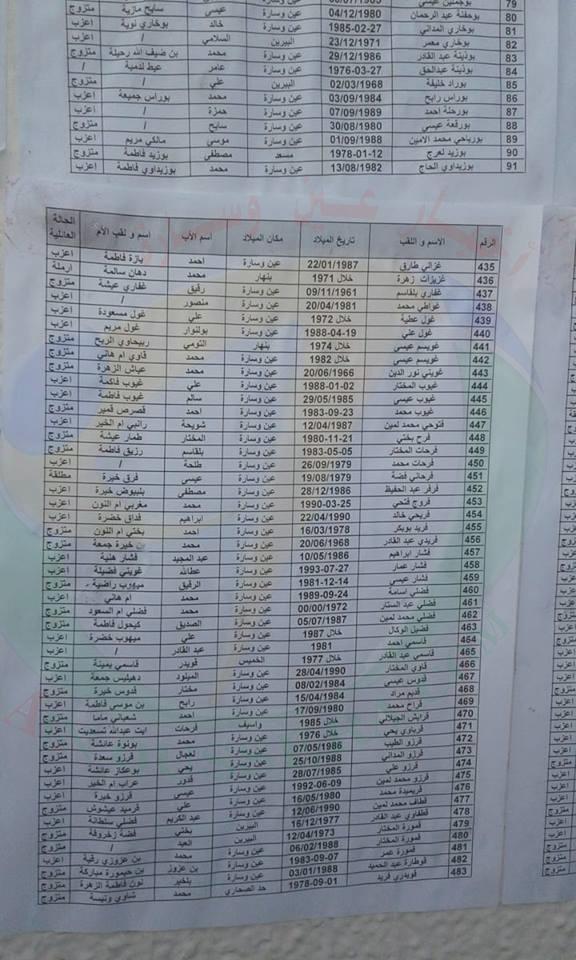 79
80 بوحفنة عبد الرحمان 04/12/1980 عين وسارة عيسى سايح مازية متزوج
81 بوخاري المداني 1985-02-27 عين وسارة خالد بوخاري نوية اعزب
82 بوخاري معمر 23/12/1971 البيرين السلامي / متزوج
83 بوذينة عبد القادر 29/12/1986 عين وسارة محمد بن ضيف الله رحيلة اعزب
84 بوذينة عبدالحق 1976-03-27 عين وسارة عامر عيط لدمية /
85 بوراد خليفة 02/03/1968 البيرين علي / متزوج
86 بوراس رابح 03/09/1984 عين وسارة محمد بوراس جميعة اعزب
87 بورحلة احمد 07/09/1989 عين وسارة حمزة / اعزب
88 بورقعة عيسى 30/08/1980 عين وسارة سايح / متزوج
89 بورياحي محمد الامين 01/09/1988 عين وسارة موسى مالكي مريم اعزب
90 بوزيد لعرج 1978-01-12 مسعد مصطفى بوزيد فاطمة متزوج
91 بوزيداوي الحاج 13/08/1982 عين وسارة محمد بوزيداوي فاطمة اعزب
الرقم الاسم و اللقب تاريخ الميلاد مكان الميلاد اسم الأب اسم و لقب الأم الحالة العائلية
435 غزالي طارق 22/01/1987 عين وسارة احمد يازة فاطمة اعزب
436 غزيزات زهرة خلال 1971 بنهار محمد دهان سالمة ارملة
437 غفاري بلقاسم 09/11/1961 عين وسارة رفيق غفاري عيشة متزوج
438 غواطي محمد 20/04/1981 عين وسارة منصور / اعزب
439 غول عطية خلال 1972 عين وسارة علي غول مسعودة متزوج
440 غول علي 1988-04-19 عين وسارة بولنوار غول مريم اعزب
441 غويسم عيسى خلال 1974 بنهار التومي ربيحاوي الربح متزوج
442 غويسم عيسى خلال 1982 عين وسارة محمد قاوي ام هاني متزوج
443 غويني نور الدين 20/06/1966 عين وسارة محمد عياش الزهرة متزوج
444 غيوب المختار 1988-01-02 عين وسارة علي غيوب فاكمة اعزب
445 غيوب عيسى 29/05/1985 عين وسارة سالم غيوب فاطمة اعزب
446 غيوب محمد 1983-09-23 عين وسارة احمد قصرص قمير متزوج
447 فتوحي محمد لمين 12/04/1987 عين وسارة شويحة رانبي ام الخير اعزب
448 فرح بختي 1980-11-21 عين وسارة المختار طمار عيشة متزوج
449 فرحات المختار 1983-05-05 عين وسارة بلقاسم رزيق فاطمة متزوج
450 فرحات محمد 26/09/1979 عين وسارة طلحة / اعزب
451 فرحاني فضة 19/08/1979 عين وسارة عيسى فرق خيرة مطلقة
452 فرفر عبد الحفيظ 28/12/1986 عين وسارة مصطفى بلبيوض خيرة اعزب
453 فروج فتحي 1990-03-25 عين وسارة محمد مغربي ام النون اعزب
454 فريحي خالد 22/04/1990 عين وسارة ابراهيم فداق خضرة متزوج
455 فريد بوبكر 16/03/1978 عين وسارة احمد بختي ام النون متزوج
456 فريدي عبد القادر 20/06/1968 عين وسارة محمد خيرة جمعة متزوج
457 فشار ابراهيم 10/05/1986 عين وسارة عبد المجيد فشار هنية اعزب
458 فشار عمار 1993-07-27 عين وسارة عطالله غويتي فضيلة اعزب
459 فشار عيسى 1981-12-14 عين وسارة الرفيق ميهوب راضية متزوج
460 فضلي اسامة 1989-09-24 عين وسارة محمد ام هاني اعزب
461 فضلي عبد الستار 00/00/1972 عين وسارة محمد فضلي ام السعود متزوج
462 فضلي محمد لمين 05/07/1987 عين وسارة الصديق كيحول فاطمة متزوج
463 فضيل الوكال خلال 1987 عين وسارة علي ميهوب خضرة اعزب
464 قاسمي احمد 1981 عين وسارة عبد القادر / اعزب
465 قاسمي عبد القادر خلال 1977 الخميس قويدر قاسمي يمينة متزوج
466 قاوي المختار 28/04/1990 عين وسارة الميلود دهيليس جمعة اعزب
467 قدوس عيسى 08/02/1984 عين وسارة مختار قدوس خيرة متزوج
468 قديم مراد 15/04/1984 عين وسارة رابح بن موسى فاطمة اعزب
469 قراح محمد 17/09/1980 عين وسارة احمد شعباني ماما متزوج
470 قرايش الجيلالي خلال 1985 واسيف فرحات ايت عبدالله تسعديت متزوج
471 قرباوي يحي خلال 1976 عين وسارة محمد بونوة عائشة متزوج
472 قرزو الطيب 07/05/1986 عين وسارة لعجال قرزو سعدة متزوج
473 قرزو المداني 25/10/1988 عين وسارة يحي بوعكاز عائشة اعزب
474 قرزو علي 28/07/1985 عين وسارة قدور عراب ام الخير اعزب
475 قرزو محمد لمين 1992-06-09 عين وسارة عيسى قرزو خيرة اعزب
476 قريميدة محمد 16/05/1980 عين وسارة علي قرميد عيشوش متزوج
477 قطاف محمد لمين 12/06/1990 عين وسارة عبد الكريم فضلي سلطانة متزوج
478 قطفاوي عبد القادر 16/12/1977 البيرين بختي فضة زخروفة متزوج
479 قمورة المختار 12/04/1973 البيرين العيد / متزوج
480 قمورة المختار 06/02/1988 عين وسارة محمد بن عزوزي رقية اعزب
481 قمورة عمر 1983-09-07 عين وسارة بن عزوز بن حيمورة مباركة متزوج
482 قوطارة عبد الحميد 03/01/1988 عين وسارة بلخير نون فاطمة الزهرة متزوج
483 قويدري فريد 1978-09-01 حد الصحاري محمد شاوي ونيسة متزوج